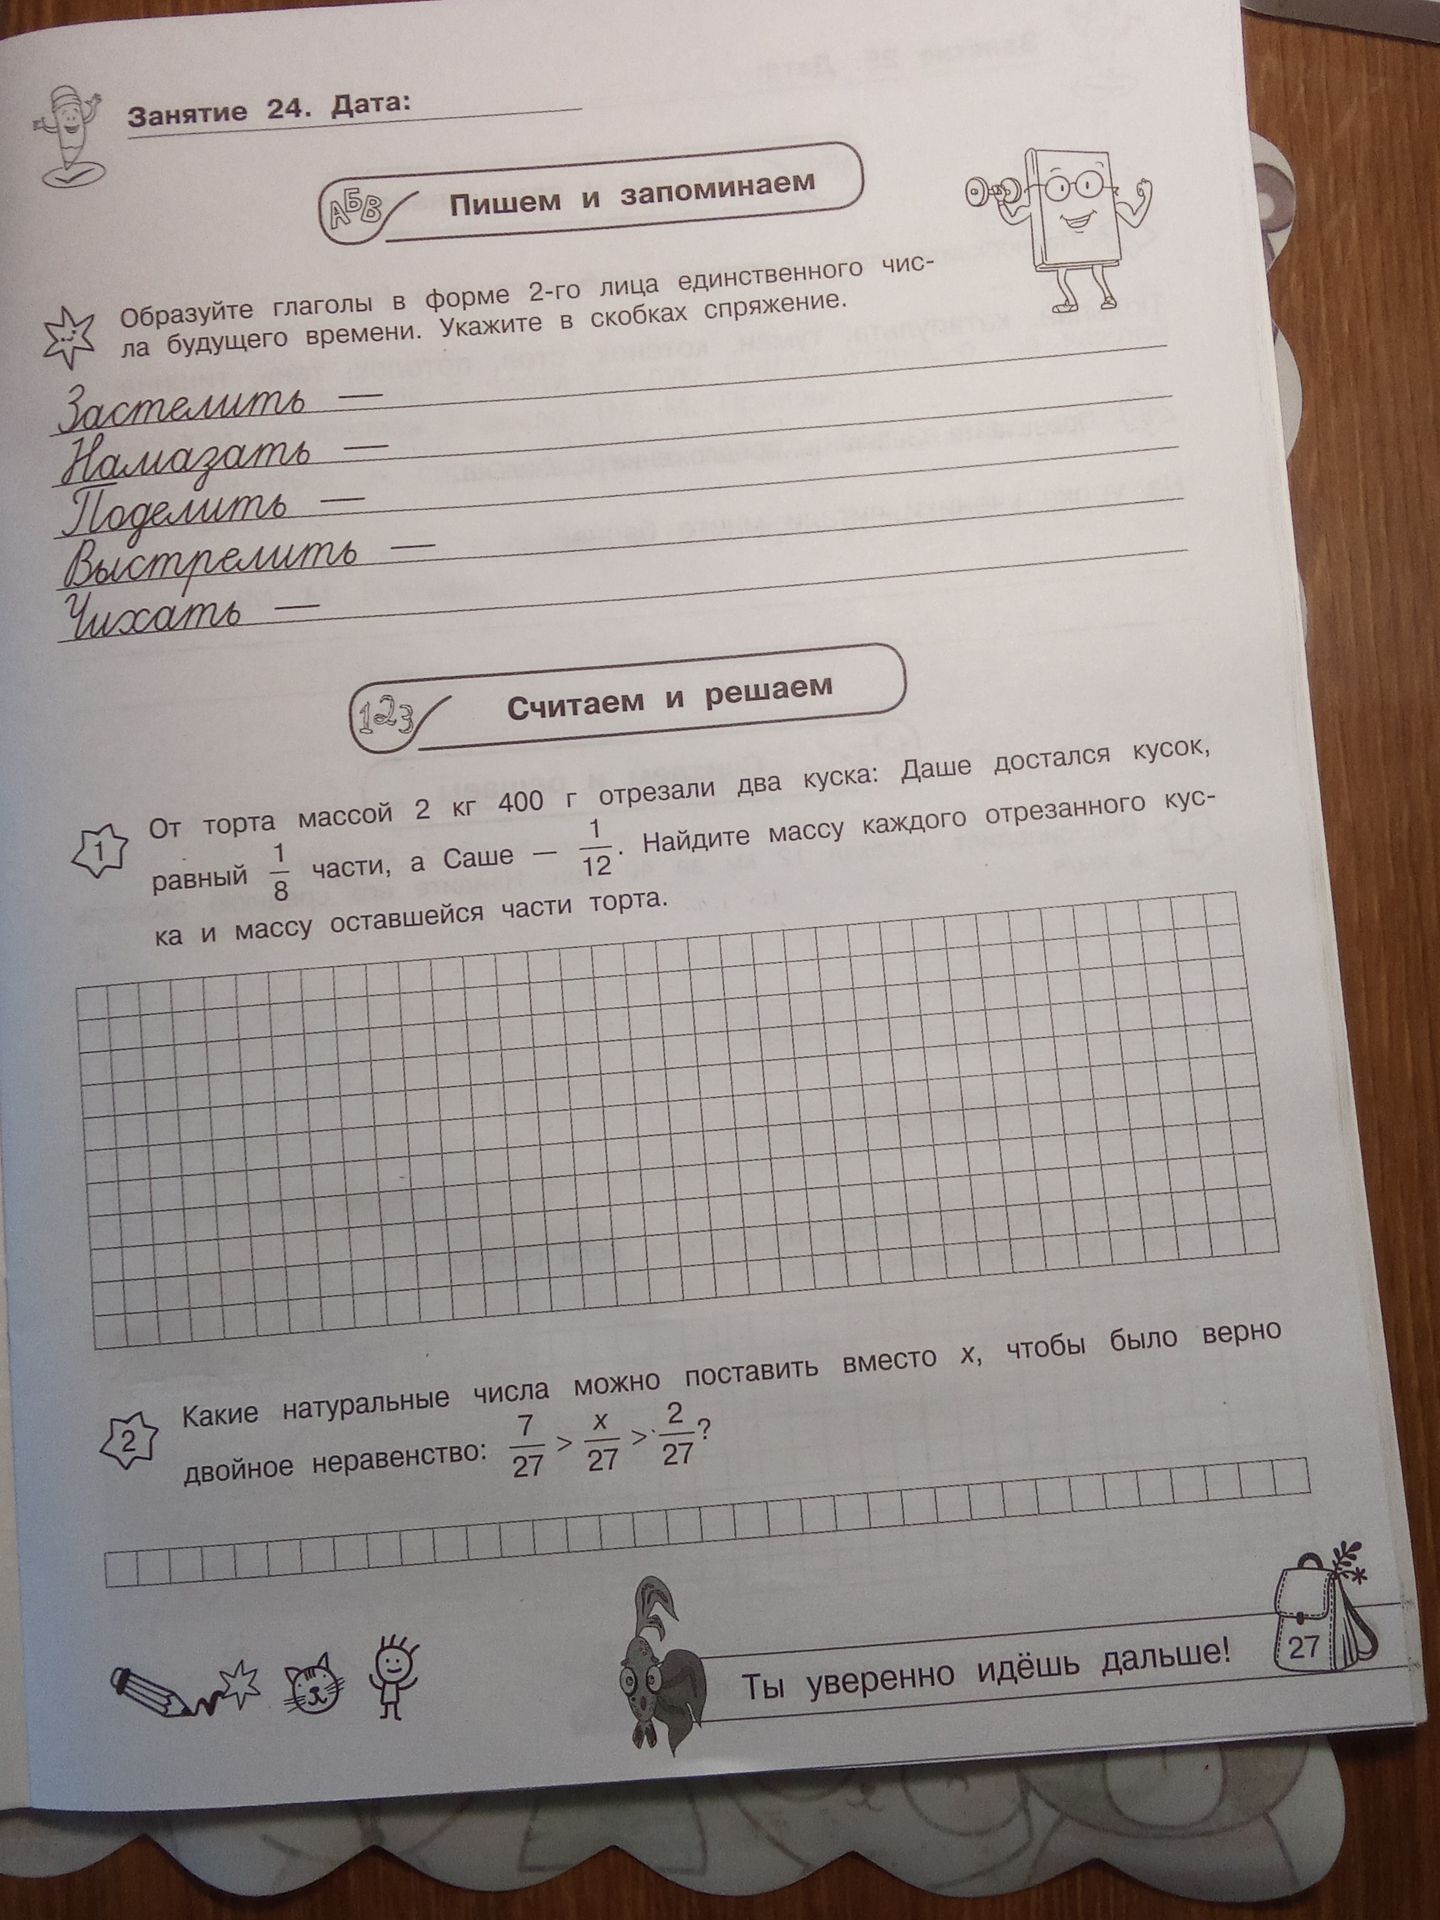 Занятие 24. Дата:
АБВ
Пишем и запоминаем
Образуйте глаголы в форме 2-го лица единственного чис-
ла будущего времени. Укажите в скобках спряжение.
Застелить —
Намазать —
Поделить —
Выстрелить —
Чихать —
123
Считаем и решаем
1
От торта массой 2 кг 400 г отрезали два куска: Даше достался кусок,
равный 1/8 части, а Саше — 1/12. Найдите массу каждого отрезанного кус-
ка и массу оставшейся части торта.
2
Какие натуральные числа можно поставить вместо x, чтобы было верно
двойное неравенство: 7/27 > x/27 > 2/27?
Ты уверенно идёшь дальше!
27